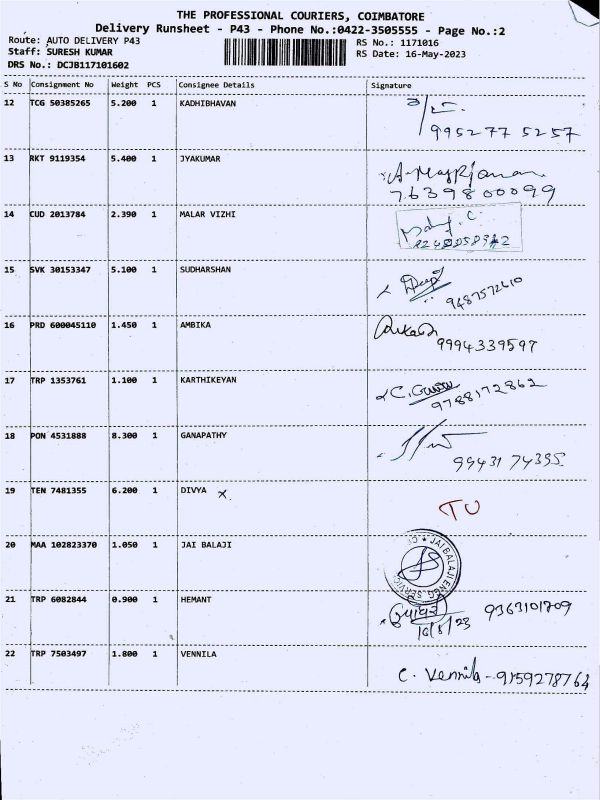 THE PROFESSIONAL COURIERS, COIMBATORE
Delivery Runsheet - P43 - Phone No.:0422-3505555 - Page No.:2
Route: AUTO DELIVERY P43
RS No.: 1171016
Staff: SURESH KUMAR
RS Date: 16-May-2023
DRS No.: DCJB117101602
S No Consignment No Weight PCS Consignee Details Signature
12 TCG 50385265 5.200 1 KADHIBHAVAN
99527 75257
13 RKT 9119354 5.400 1 JYAKUMAR
7639800099
14 CUD 2013784 2.390 1 MALAR VIZHI
15 SVK 30153347 5.100 1 SUDHARSHAN
9487572610
16 PRD 600045110 1.450 1 AMBIKA
9994339597
17 TRP 1353761 1.100 1 KARTHIKEYAN
9788172862
18 PON 4531888 8.300 1 GANAPATHY
99431 74395
19 TEN 7481355 6.200 1 DIVYA x
TU
20 MAA 102823370 1.050 1 JAI BALAJI
JAI BALAJI ENGG. SERVIC
21 TRP 6082844 0.900 1 HEMANT
9363101709
16/5/23
22 TRP 7503497 1.800 1 VENNILA
C. Vennila - 9159278764